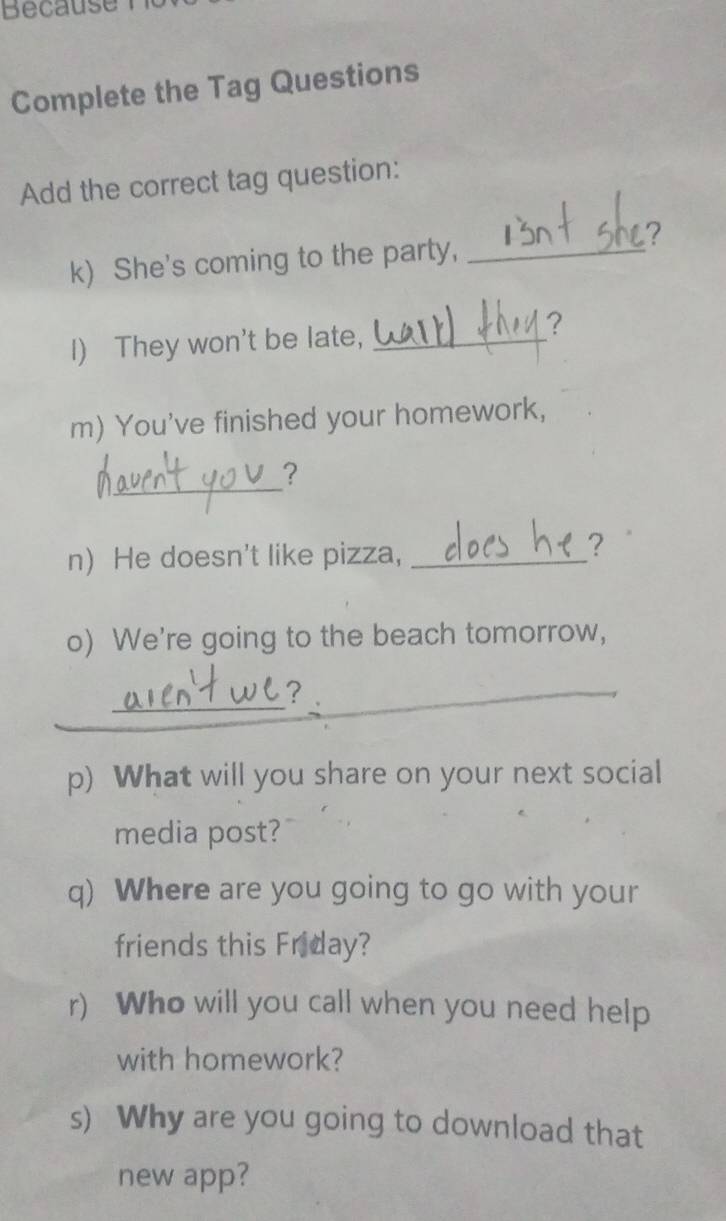 Because
Complete the Tag Questions
Add the correct tag question:
k) She's coming to the party, isnt she?
l) They won't be late, they?
m) You've finished your homework,
haven't you?
n) He doesn't like pizza, does he?
o) We're going to the beach tomorrow,
aren't we?
p) What will you share on your next social
media post?
q) Where are you going to go with your
friends this Friday?
r) Who will you call when you need help
with homework?
s) Why are you going to download that
new app?